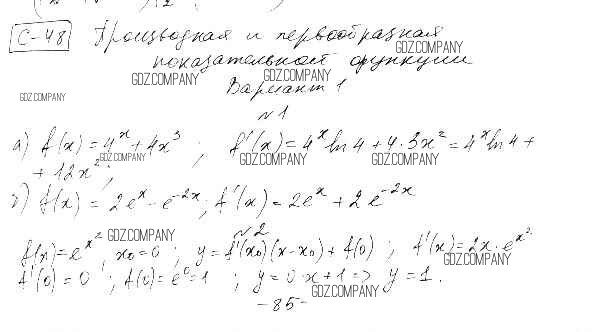 С-48 Производная и первообразная
GDZ.COMPANY
показательной функции
GDZ.COMPANY GDZ.COMPANY
Вариант 1
GDZ.COMPANY
№1
а) f(x) = 4^x + 4x^3 ; f'(x) = 4^x ln 4 + 4·3x^2 = 4^x ln 4 +
GDZ.COMPANY GDZ.COMPANY GDZ.COMPANY
+ 12x^2 ;
б) f(x) = 2e^x - e^{-2x} ; f'(x) = 2e^x + 2e^{-2x}
№2
GDZ.COMPANY
f(x) = e^{x^2} , x_0 = 0 ; y = f'(x_0)(x - x_0) + f(0) ; f'(x) = 2x·e^{x^2}
GDZ.COMPANY
f'(0) = 0 ; f(0) = e^0 = 1 ; y = 0·x + 1 => y = 1.
GDZ.COMPANY
-85-